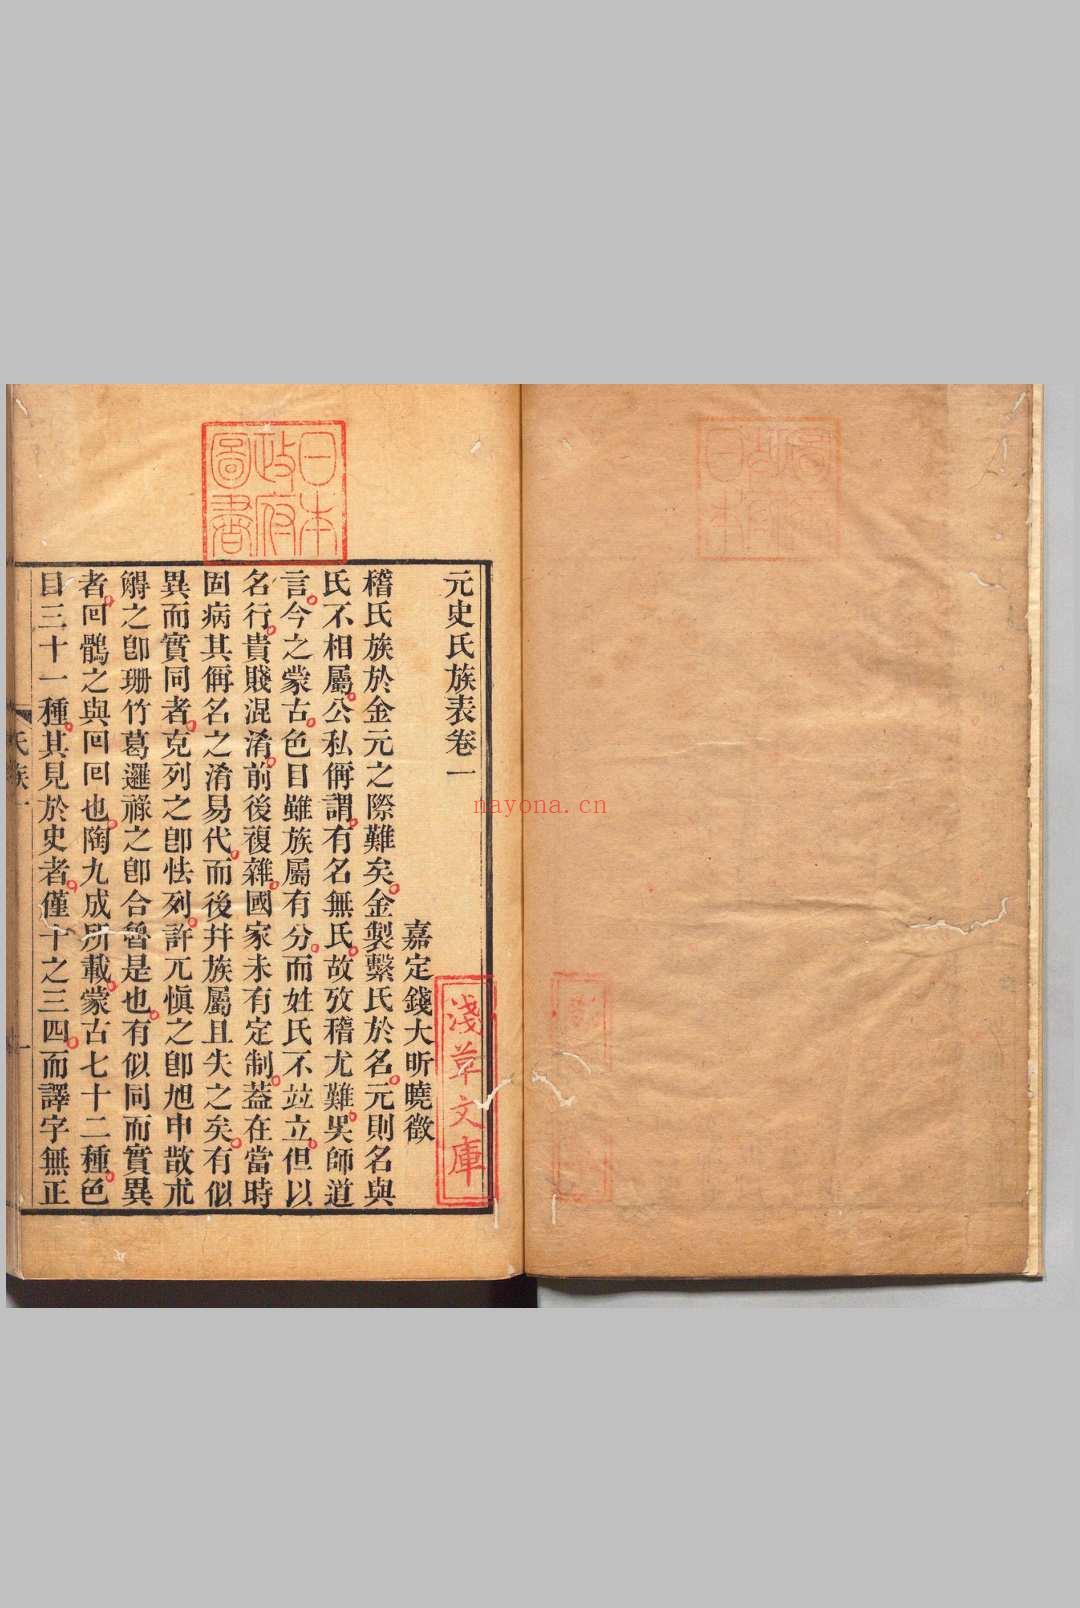 元史氏族表卷一
嘉定錢大昕曉徵
稽氏族於金元之際難矣金製繫氏於名元則名與
氏不相屬公私稱謂有名無氏故攷稽尤難吴師道
言今之蒙古色目雖族屬有分而姓氏不竝立但以
名行貴賤混淆前後複雜國家未有定制蓋在當時
固病其稱名之淆易代而後幷族屬且失之矣有似
異而實同者克列之卽怯列許兀愼之卽旭申散朮
觪之卽珊竹葛邏祿之卽合魯是也有似同而實異
者回鶻之與回回也陶九成所載蒙古七十二種色
目三十一種其見於史者僅十之三四而譯字無正
氏族一
一
日本政府圖書
淺草文庫
nayona.cn